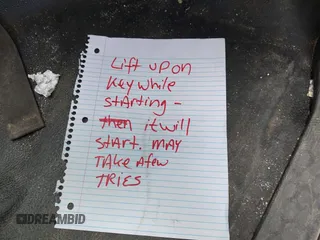 Lift up on
key while
starting -
then it will
start. may
take a few
tries
DREAMBID